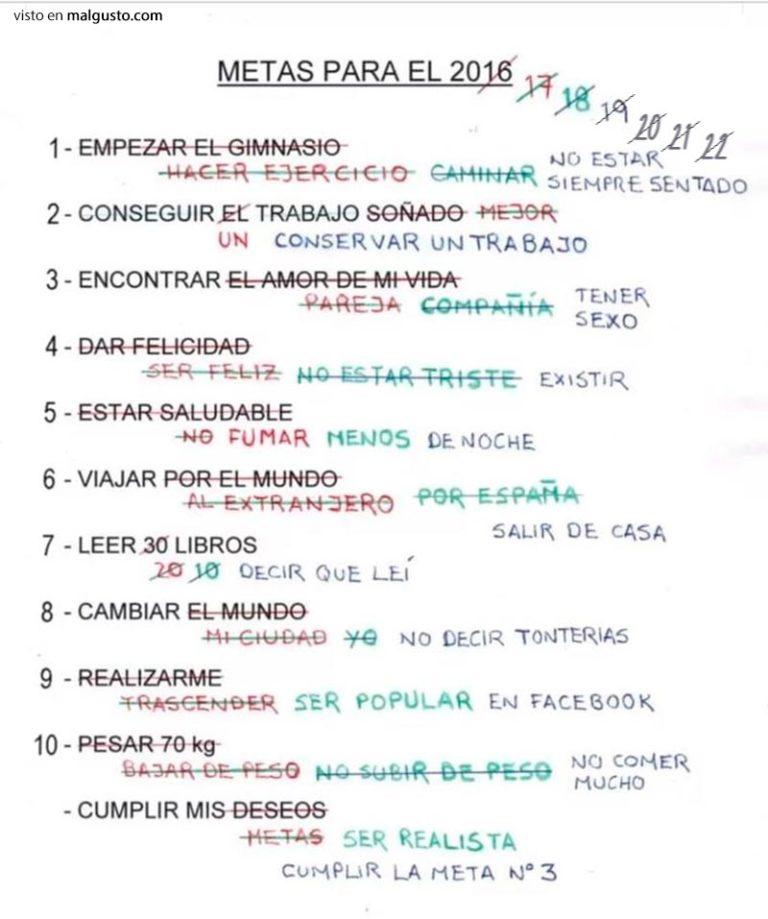 visto en malgusto.com
METAS PARA EL 2016 17 18 19 20 21 22
1 - EMPEZAR EL GIMNASIO
HACER EJERCICIO CAMINAR NO ESTAR SIEMPRE SENTADO
2 - CONSEGUIR EL TRABAJO SOÑADO MEJOR
UN CONSERVAR UN TRABAJO
3 - ENCONTRAR EL AMOR DE MI VIDA
PAREJA COMPAÑÍA TENER SEXO
4 - DAR FELICIDAD
SER FELIZ NO ESTAR TRISTE EXISTIR
5 - ESTAR SALUDABLE
NO FUMAR MENOS DE NOCHE
6 - VIAJAR POR EL MUNDO
AL EXTRANJERO POR ESPAÑA
SALIR DE CASA
7 - LEER 30 LIBROS
20 10 DECIR QUE LEÍ
8 - CAMBIAR EL MUNDO
MI CIUDAD YO NO DECIR TONTERIAS
9 - REALIZARME
TRASCENDER SER POPULAR EN FACEBOOK
10 - PESAR 70 kg
BAJAR DE PESO NO SUBIR DE PESO NO COMER MUCHO
- CUMPLIR MIS DESEOS
METAS SER REALISTA
CUMPLIR LA META Nº 3